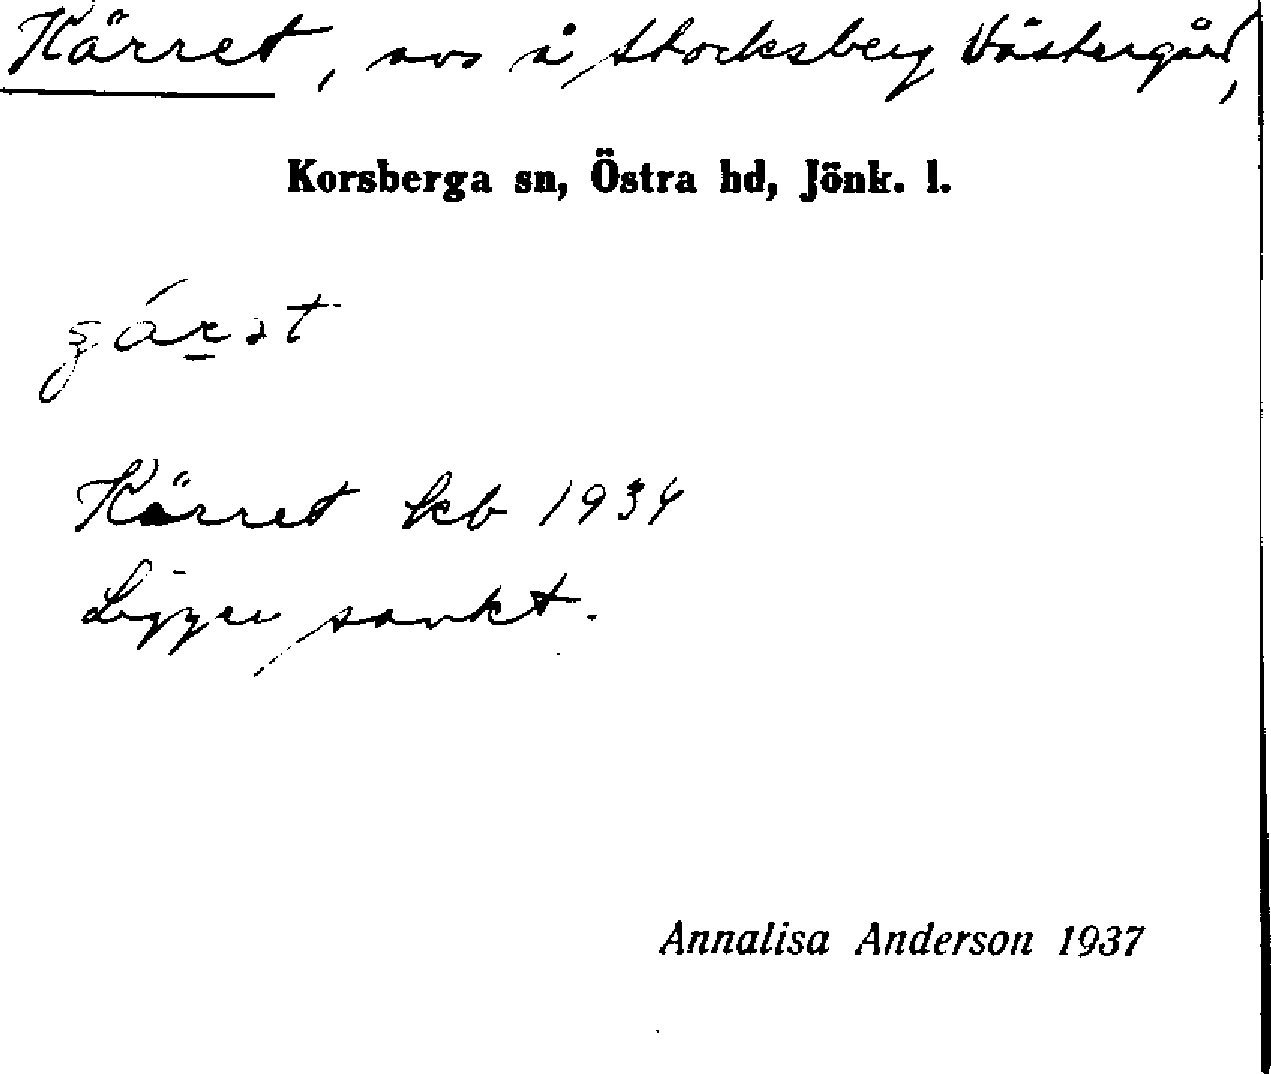 Kärret, avs å Stocksberg Västergård,
Korsberga sn, Östra hd, Jönk. l.
Kärret kb 1934
Ligger sankt.
Annalisa Anderson 1937